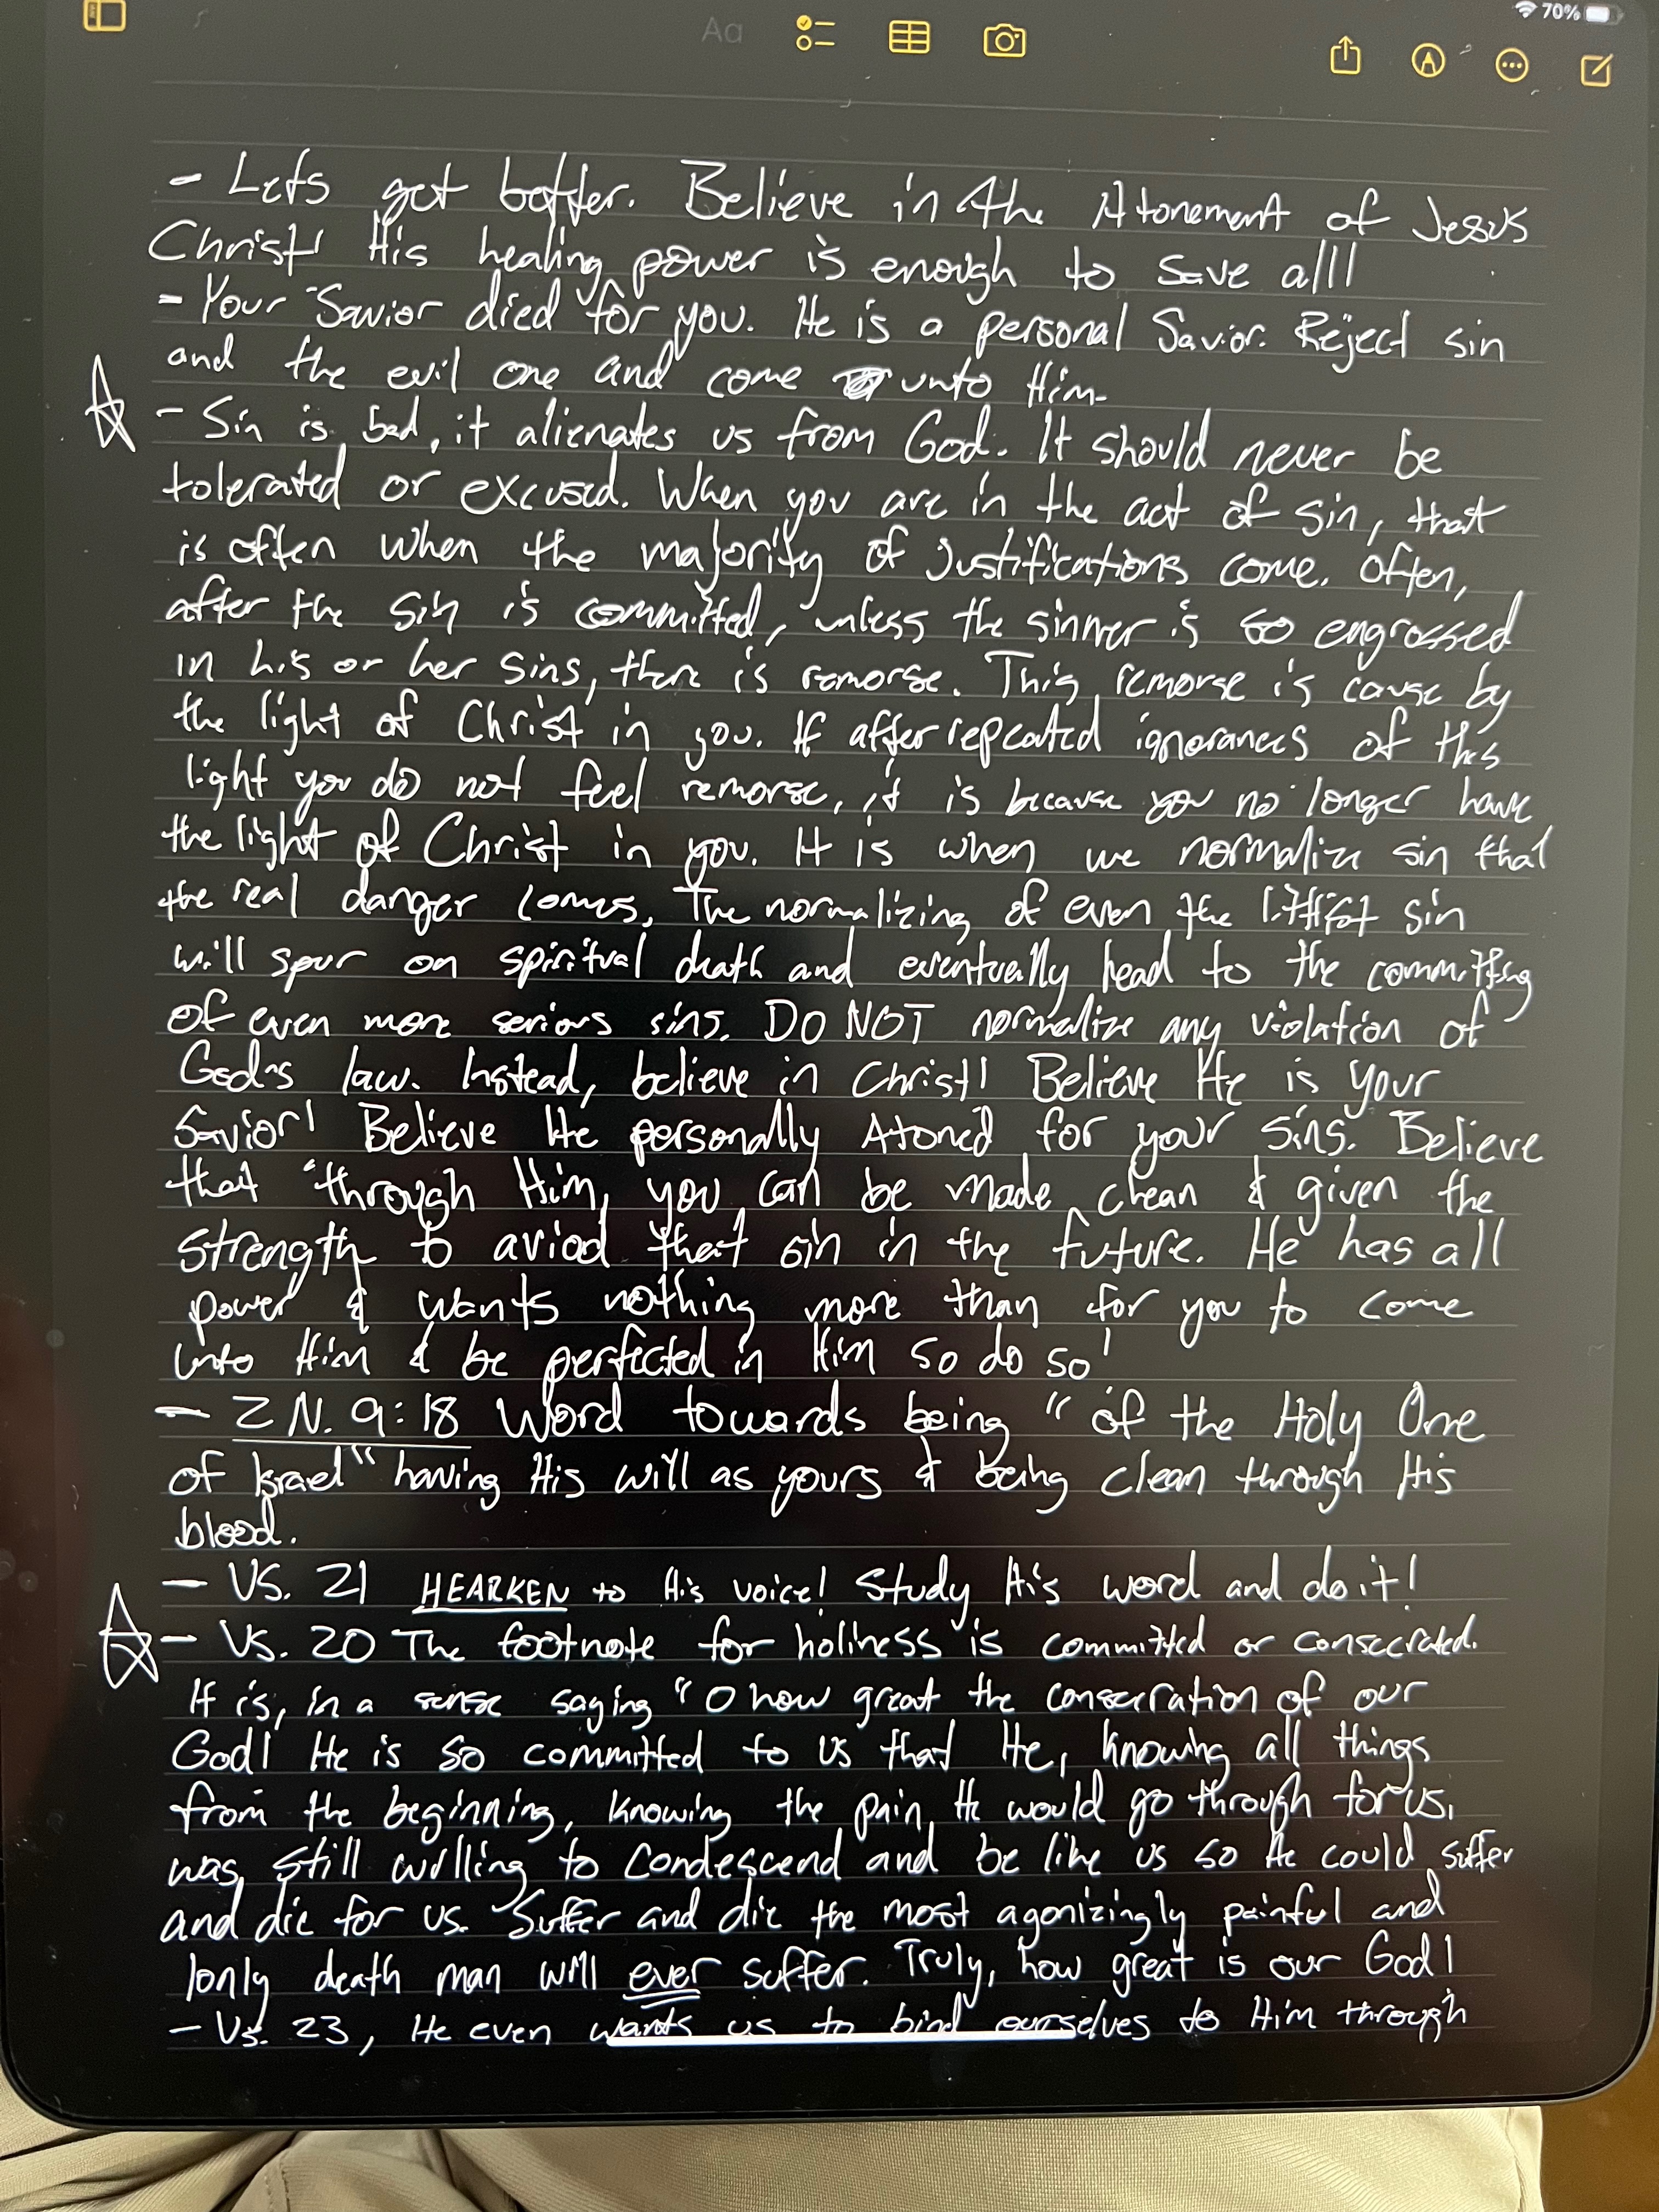 70%
Aa
- Lets get better. Believe in the Atonement of Jesus
Christ! His healing power is enough to save all!
- Your Savior died for you. He is a personal Savior. Reject sin
and the evil one and come unto Him.
- Sin is bad, it alienates us from God. It should never be
tolerated or excused. When you are in the act of sin, that
is often when the majority of justifications come. Often,
after the sin is committed, unless the sinner is so engrossed
in his or her sins, there is remorse. This remorse is cause by
the light of Christ in you. If after repeated ignorances of this
light you do not feel remorse, it is because you no longer have
the light of Christ in you. It is when we normalize sin that
the real danger comes. The normalizing of even the littlest sin
will spur on spiritual death and eventually lead to the committing
of even more serious sins. DO NOT normalize any violation of
God's law. Instead, believe in Christ! Believe He is your
Savior! Believe He personally Atoned for your sins. Believe
that through Him, you can be made clean & given the
strength to aviod that sin in the future. He has all
power & wants nothing more than for you to come
unto Him & be perfected in Him so do so!
- 2 N. 9:18 Word towards being "of the Holy One
of Israel" having His will as yours & being clean through His
blood.
- VS. 21 HEARKEN to His voice! Study His word and do it!
- Vs. 20 The footnote for holiness is committed or consecrated.
It is, in a sense saying "O how great the consecration of our
God! He is so committed to us that He, knowing all things
from the beginning, knowing the pain He would go through for us,
was still willing to condescend and be like us so He could suffer
and die for us. Suffer and die the most agonizingly painful and
lonly death man will ever suffer. Truly, how great is our God!
- Vs. 23, He even wants us to bind ourselves to Him through